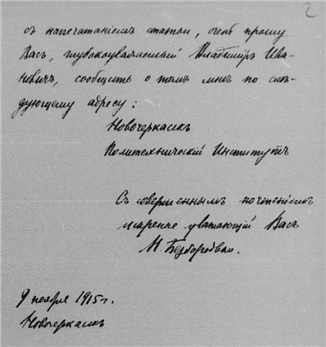 2
съ напечатаніемъ статьи, очень прошу
Васъ, глубокоуважаемый Владиміръ Ива-
новичъ, сообщить о томъ мнѣ по слѣ-
дующему адресу:
Новочеркасскъ
Политехническій Институтъ
Съ совершеннымъ почтеніемъ
искренне уважающій Васъ
Н
9 ноября 1915 г.
Новочеркасскъ